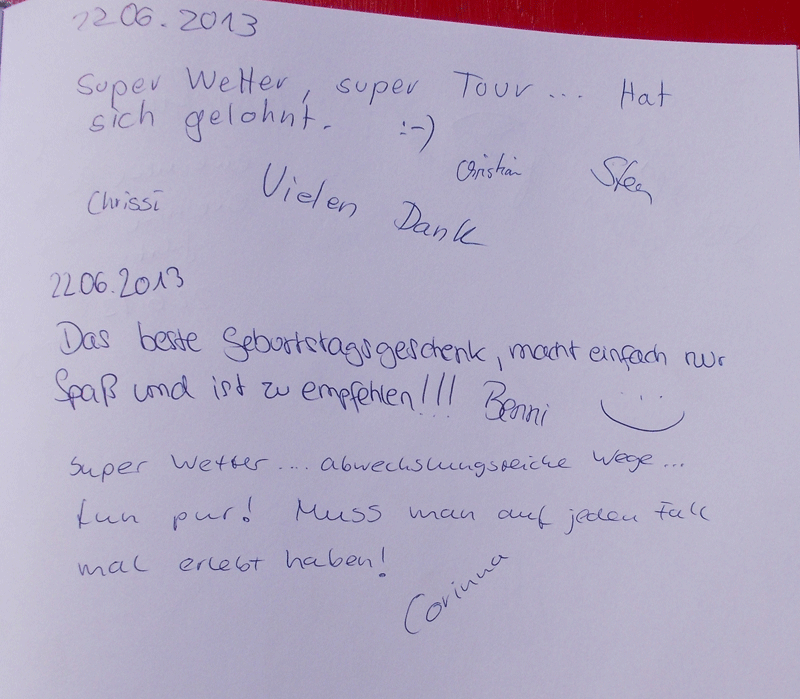 22.06.2013
Super Wetter, super Tour... Hat
sich gelohnt. :-)
Christian
Chrissi Vielen Dank
22.06.2013
Das beste Geburtstagsgeschenk, macht einfach nur
Spaß und ist zu empfehlen!!! Benni
Super Wetter.... abwechslungsreiche Wege...
fun pur! Muss man auf jeden Fall
mal erlebt haben!
Corinna